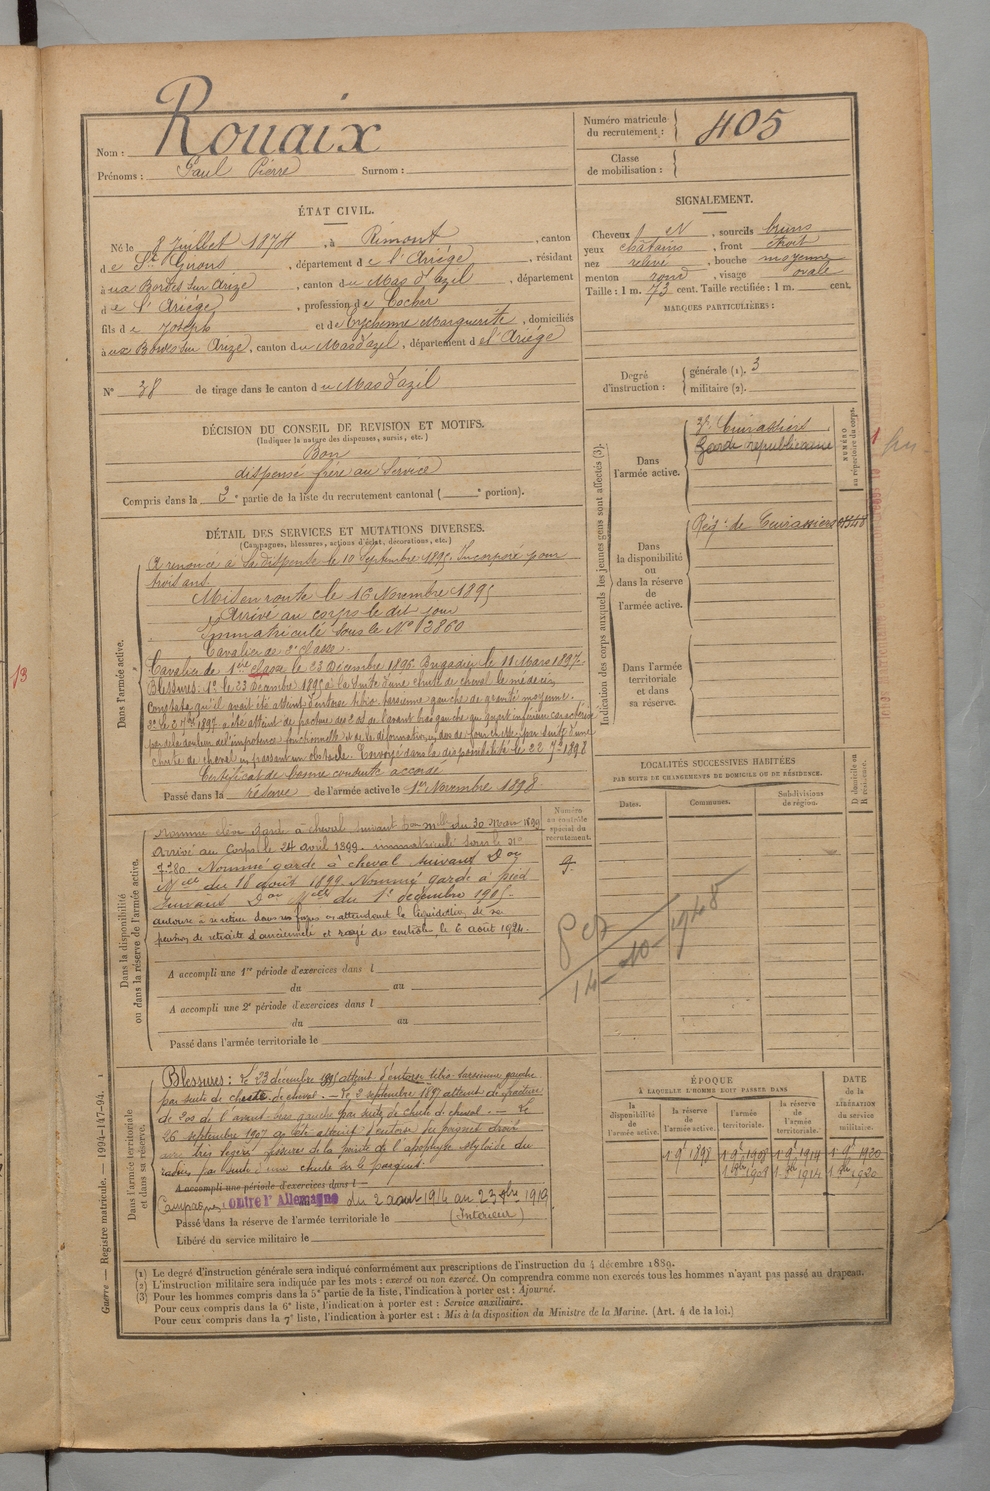 Nom : Rouaix
Prénoms : Paul Pierre Surnom :
Numéro matricule du recrutement : 405
Classe de mobilisation :
ÉTAT CIVIL.
Né le 8 Juillet 1874, à Rimont, canton
de St Girons, département de l'Ariége, résidant
à aux Bordes sur Arize, canton du Mas d'azil, département
de l'Ariége, profession de Cocher
fils de Joseph et de Eychenne Marguerite, domiciliés
à aux Bordes sur Arize, canton du Mas d'azil, département de l'Ariége
N° 38 de tirage dans le canton du Mas d'azil
SIGNALEMENT.
Cheveux N, sourcils bruns
yeux châtains, front étroit
nez relevé, bouche moyenne
menton rond, visage ovale
Taille : 1 m. 73 cent. Taille rectifiée : 1 m. cent.
MARQUES PARTICULIÈRES :
Degré d'instruction : générale (1). 3
militaire (2).
DÉCISION DU CONSEIL DE REVISION ET MOTIFS.
(Indiquer la nature des dispenses, sursis, etc.)
Bon
dispensé frère au Service
Compris dans la 2e partie de la liste du recrutement cantonal ( e portion).
DÉTAIL DES SERVICES ET MUTATIONS DIVERSES.
(Campagnes, blessures, actions d'éclat, décorations, etc.)
Dans l'armée active.
A renoncé à sa dispense le 10 Septembre 1895. Incorporé pour
trois ans.
Mis en route le 16 Novembre 1895
Arrivé au corps le dit jour
Immatriculé sous le N° 3860
Cavalier de 2e classe.
Cavalier de 1ère classe le 23 Décembre 1896. Brigadier le 11 Mars 1897.
Blessures : 1° le 23 Décembre 1895 à la suite d'une chute de cheval le médecin
constata qu'il avait été atteint d'entorse tibio tarsienne gauche de gravité moyenne.
2° le 2 7bre 1897 a été atteint de fracture des 2 os de l'avant bras gauche au quart inférieur caractérisée
par de la douleur de l'impotence fonctionnelle et de la déformation en dos de fourchette par suite d'une
chute de cheval en passant un obstacle. Envoyé dans la disponibilité le 22 7bre 1898
Certificat de bonne conduite accordé
Passé dans la réserve de l'armée active le 1er Novembre 1898
Indication des corps auxquels les jeunes gens sont affectés (3).
NUMÉRO au répertoire du corps.
Dans l'armée active.
Cuirassiers
Garde républicaine
Dans la disponibilité ou dans la réserve de l'armée active.
Régt de Cuirassiers
Dans l'armée territoriale et dans sa réserve.
LOCALITÉS SUCCESSIVES HABITÉES
PAR SUITE DE CHANGEMENTS DE DOMICILE OU DE RÉSIDENCE.
Dates. Communes. Subdivisions de région. D domicile ou R résidence.
Dans la disponibilité ou dans la réserve de l'armée active.
Numéro au contrôle spécial du recrutement.
9
Nommé élève Garde à cheval suivant Don Mlle du 30 Mars 1899
Arrivé au Corps le 24 avril 1899. immatriculé sous le N°
7780. Nommé garde à cheval suivant Don
Melle du 18 août 1899. Nommé garde à pied
Suivant Don Melle du 1er décembre 1905.
autorisé à se retirer dans ses foyers en attendant la liquidation de sa
pension de retraite d'ancienneté et rayé des contrôles le 6 août 1924.
14-10-1948
A accompli une 1re période d'exercices dans l
du au
A accompli une 2e période d'exercices dans l
du au
Passé dans l'armée territoriale le
Dans l'armée territoriale et dans sa réserve.
Blessures : Le 23 décembre 1895 atteint d'entorse tibio tarsienne gauche
par suite de chute de cheval. - Le 2 septembre 1897 atteint de fracture
de 2 os de l'avant-bras gauche par suite de chute de cheval. - Le
26 septembre 1907 a été atteint d'entorse du poignet droit
avec très légère fissure de la pointe de l'apophyse styloïde du
radius par suite d'une chute sur le parquet.
A accompli une période d'exercices dans l
Campagnes contre l'Allemagne du 2 aout 1914 au 23 8bre 1919
(Intérieur)
Passé dans la réserve de l'armée territoriale le
Libéré du service militaire le
ÉPOQUE
À LAQUELLE L'HOMME DOIT PASSER DANS
DATE de la LIBÉRATION du service militaire.
la disponibilité de l'armée active. la réserve de l'armée active. l'armée territoriale. la réserve de l'armée territoriale.
1 9bre 1898 1 9bre 1908 1 9bre 1914 1 9bre 1920
1 8bre 1908 1 8bre 1914 1 8bre 1920
(1) Le degré d'instruction générale sera indiqué conformément aux prescriptions de l'instruction du 4 décembre 1889.
(2) L'instruction militaire sera indiquée par les mots : exercé ou non exercé. On comprendra comme non exercés tous les hommes n'ayant pas passé au drapeau.
(3) Pour les hommes compris dans la 5e partie de la liste, l'indication à porter est : Ajourné.
Pour ceux compris dans la 6e liste, l'indication à porter est : Service auxiliaire.
Pour ceux compris dans la 7e liste, l'indication à porter est : Mis à la disposition du Ministre de la Marine. (Art. 4 de la loi.)
Guerre. — Registre matricule. — 1994-147-94.